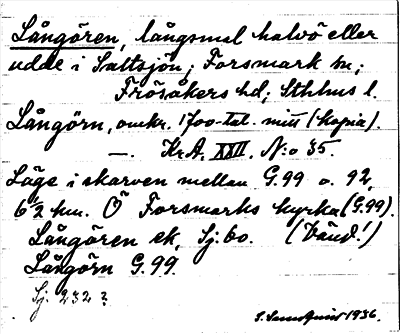 Långören, långsmal halvö eller
udde i Saltsjön; Forsmark sn;
Frösåkers hd; Sthlms l.
Långörn, omkr. 1700-tal. mitt (kopia).
—. Kr.A. XXII. N:o 35.
Läge i skarven mellan G.99 o. 92,
6 1/2 km. Ö Forsmarks kyrka (G.99).
Långören ek, Sj. 60. (Vänd!)
Långörn G.99.
Sj. 232?
1936.